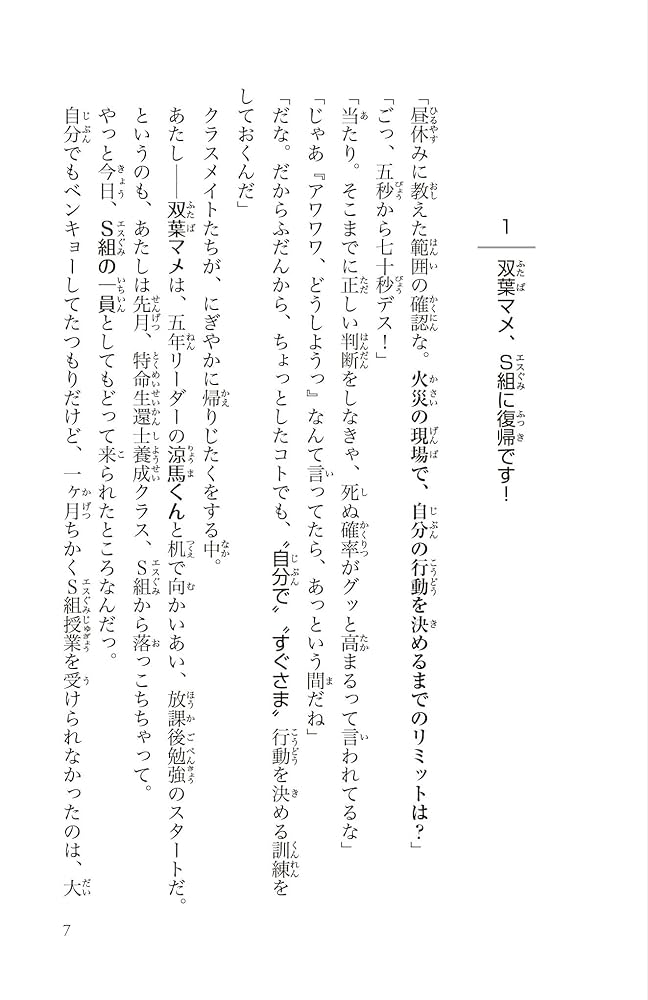 1 双葉マメ、S組に復帰です！
「昼休みに教えた範囲の確認な。火災の現場で、自分の行動を決めるまでのリミットは？」
「ごっ、五秒から七十秒デス！」
「当たり。そこまでに正しい判断をしなきゃ、死ぬ確率がグッと高まるって言われてるな」
「じゃあ『アワワワ、どうしようっ』なんて言ってたら、あっという間だね」
「だな。だからふだんから、ちょっとしたコトでも、〝自分で〟〝すぐさま〟行動を決める訓練を
しておくんだ」
クラスメイトたちが、にぎやかに帰りじたくをする中。
あたし――双葉マメは、五年リーダーの涼馬くんと机で向かいあい、放課後勉強のスタートだ。
というのも、あたしは先月、特命生還士養成クラス、S組から落っこちちゃって。
やっと今日、S組の一員としてもどって来られたところなんだっ。
自分でもベンキョーしてたつもりだけど、一ヶ月ちかくS組授業を受けられなかったのは、大
7